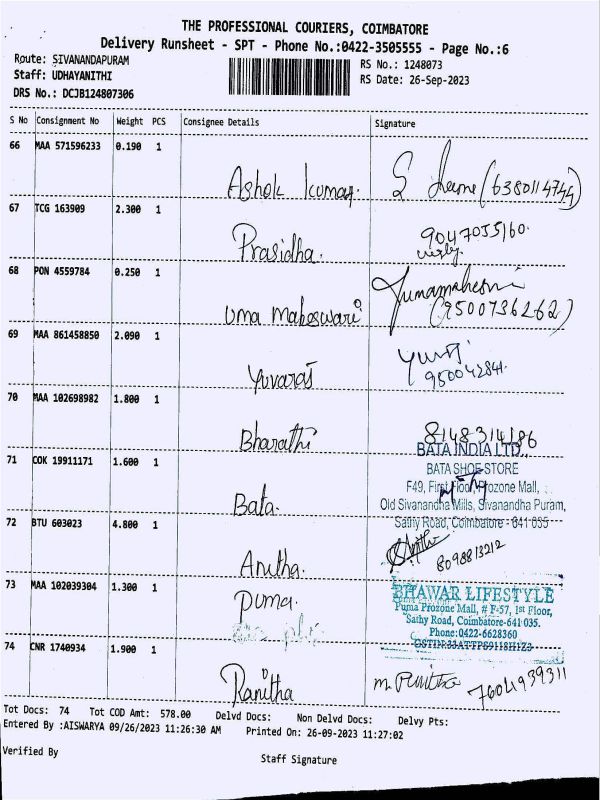 THE PROFESSIONAL COURIERS, COIMBATORE
Delivery Runsheet - SPT - Phone No.:0422-3505555 - Page No.:6
Route: SIVANANDAPURAM
RS No.: 1248073
Staff: UDHAYANITHI
RS Date: 26-Sep-2023
DRS No.: DCJB124807306
S No Consignment No Weight PCS Consignee Details Signature
66 MAA 571596233 0.190 1
Ashok kumar. (6380114744)
67 TCG 163909 2.300 1
9047035160.
Prasidha.
68 PON 4559784 0.250 1
Uma Maheswari (9500736262)
69 MAA 861458850 2.090 1
Yuvaraj
950042841.
70 MAA 102698982 1.800 1
Bharathi 8148314186
BATA INDIA LTD.,
71 COK 19911171 1.600 1
BATA SHOE STORE
F49, First Floor, Prozone Mall,
Bata. Old Sivanandha Mills, Sivanandha Puram,
Sathy Road, Coimbatore - 641 035
72 BTU 603023 4.800 1
Anitha. 8098813212
73 MAA 102039304 1.300 1
Puma.
BHAWAR LIFESTYLE
Puma Prozone Mall, # F-57, 1st Floor,
Sathy Road, Coimbatore-641 035.
Phone:0422-6628360
74 CNR 1740934 1.900 1
Ranitha 7604939311
Tot Docs: 74 Tot COD Amt: 578.00 Delvd Docs: Non Delvd Docs: Delvy Pts:
Entered By :AISWARYA 09/26/2023 11:26:30 AM Printed On: 26-09-2023 11:27:02
Verified By
Staff Signature